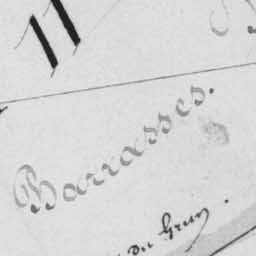 11
Barrasses.
du Gruy.